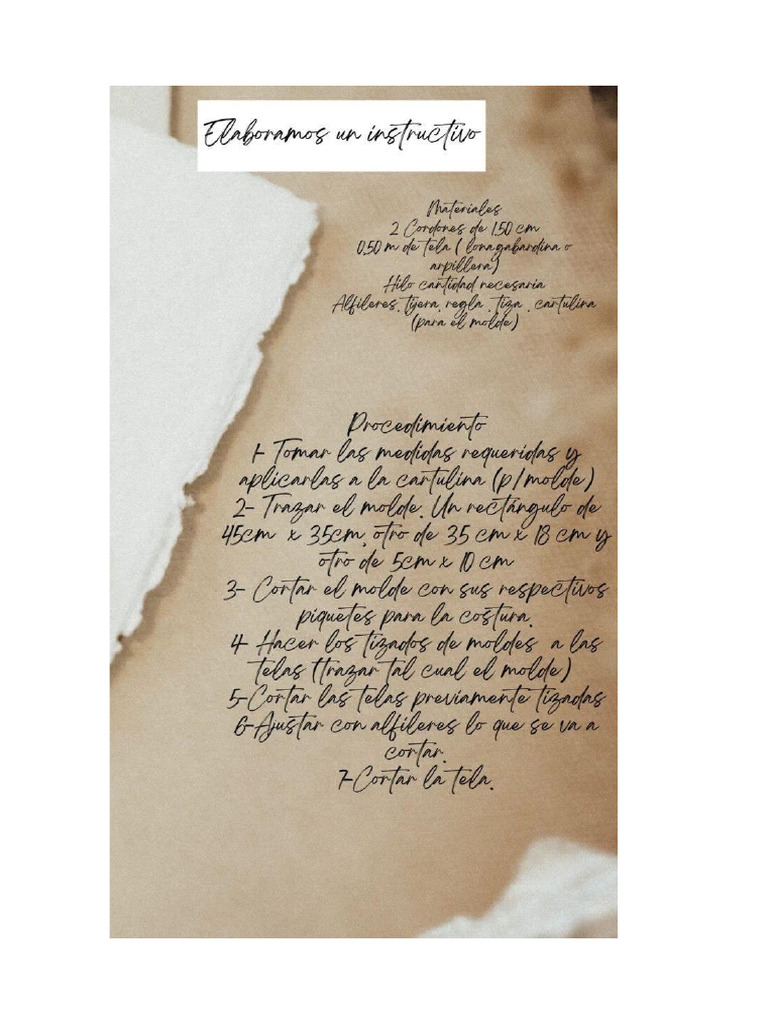 Elaboramos un instructivo
Materiales
2 Cordones de 1.50 cm
0,50 m de tela ( lonagabardina o
arpillera)
Hilo cantidad necesaria
Alfileres, tijera, regla , tiza , cartulina
(para el molde)
Procedimiento
1- Tomar las medidas requeridas y
aplicarlas a la cartulina (p/molde)
2- Trazar el molde. Un rectángulo de
45cm x 35cm, otro de 35 cm x 18 cm y
otro de 5cm x 10 cm
3- Cortar el molde con sus respectivos
piquetes para la costura.
4- Hacer los tizados de moldes a las
telas (trazar tal cual el molde)
5-Cortar las telas previamente tizadas
6-Ajustar con alfileres lo que se va a
cortar.
7-Cortar la tela.